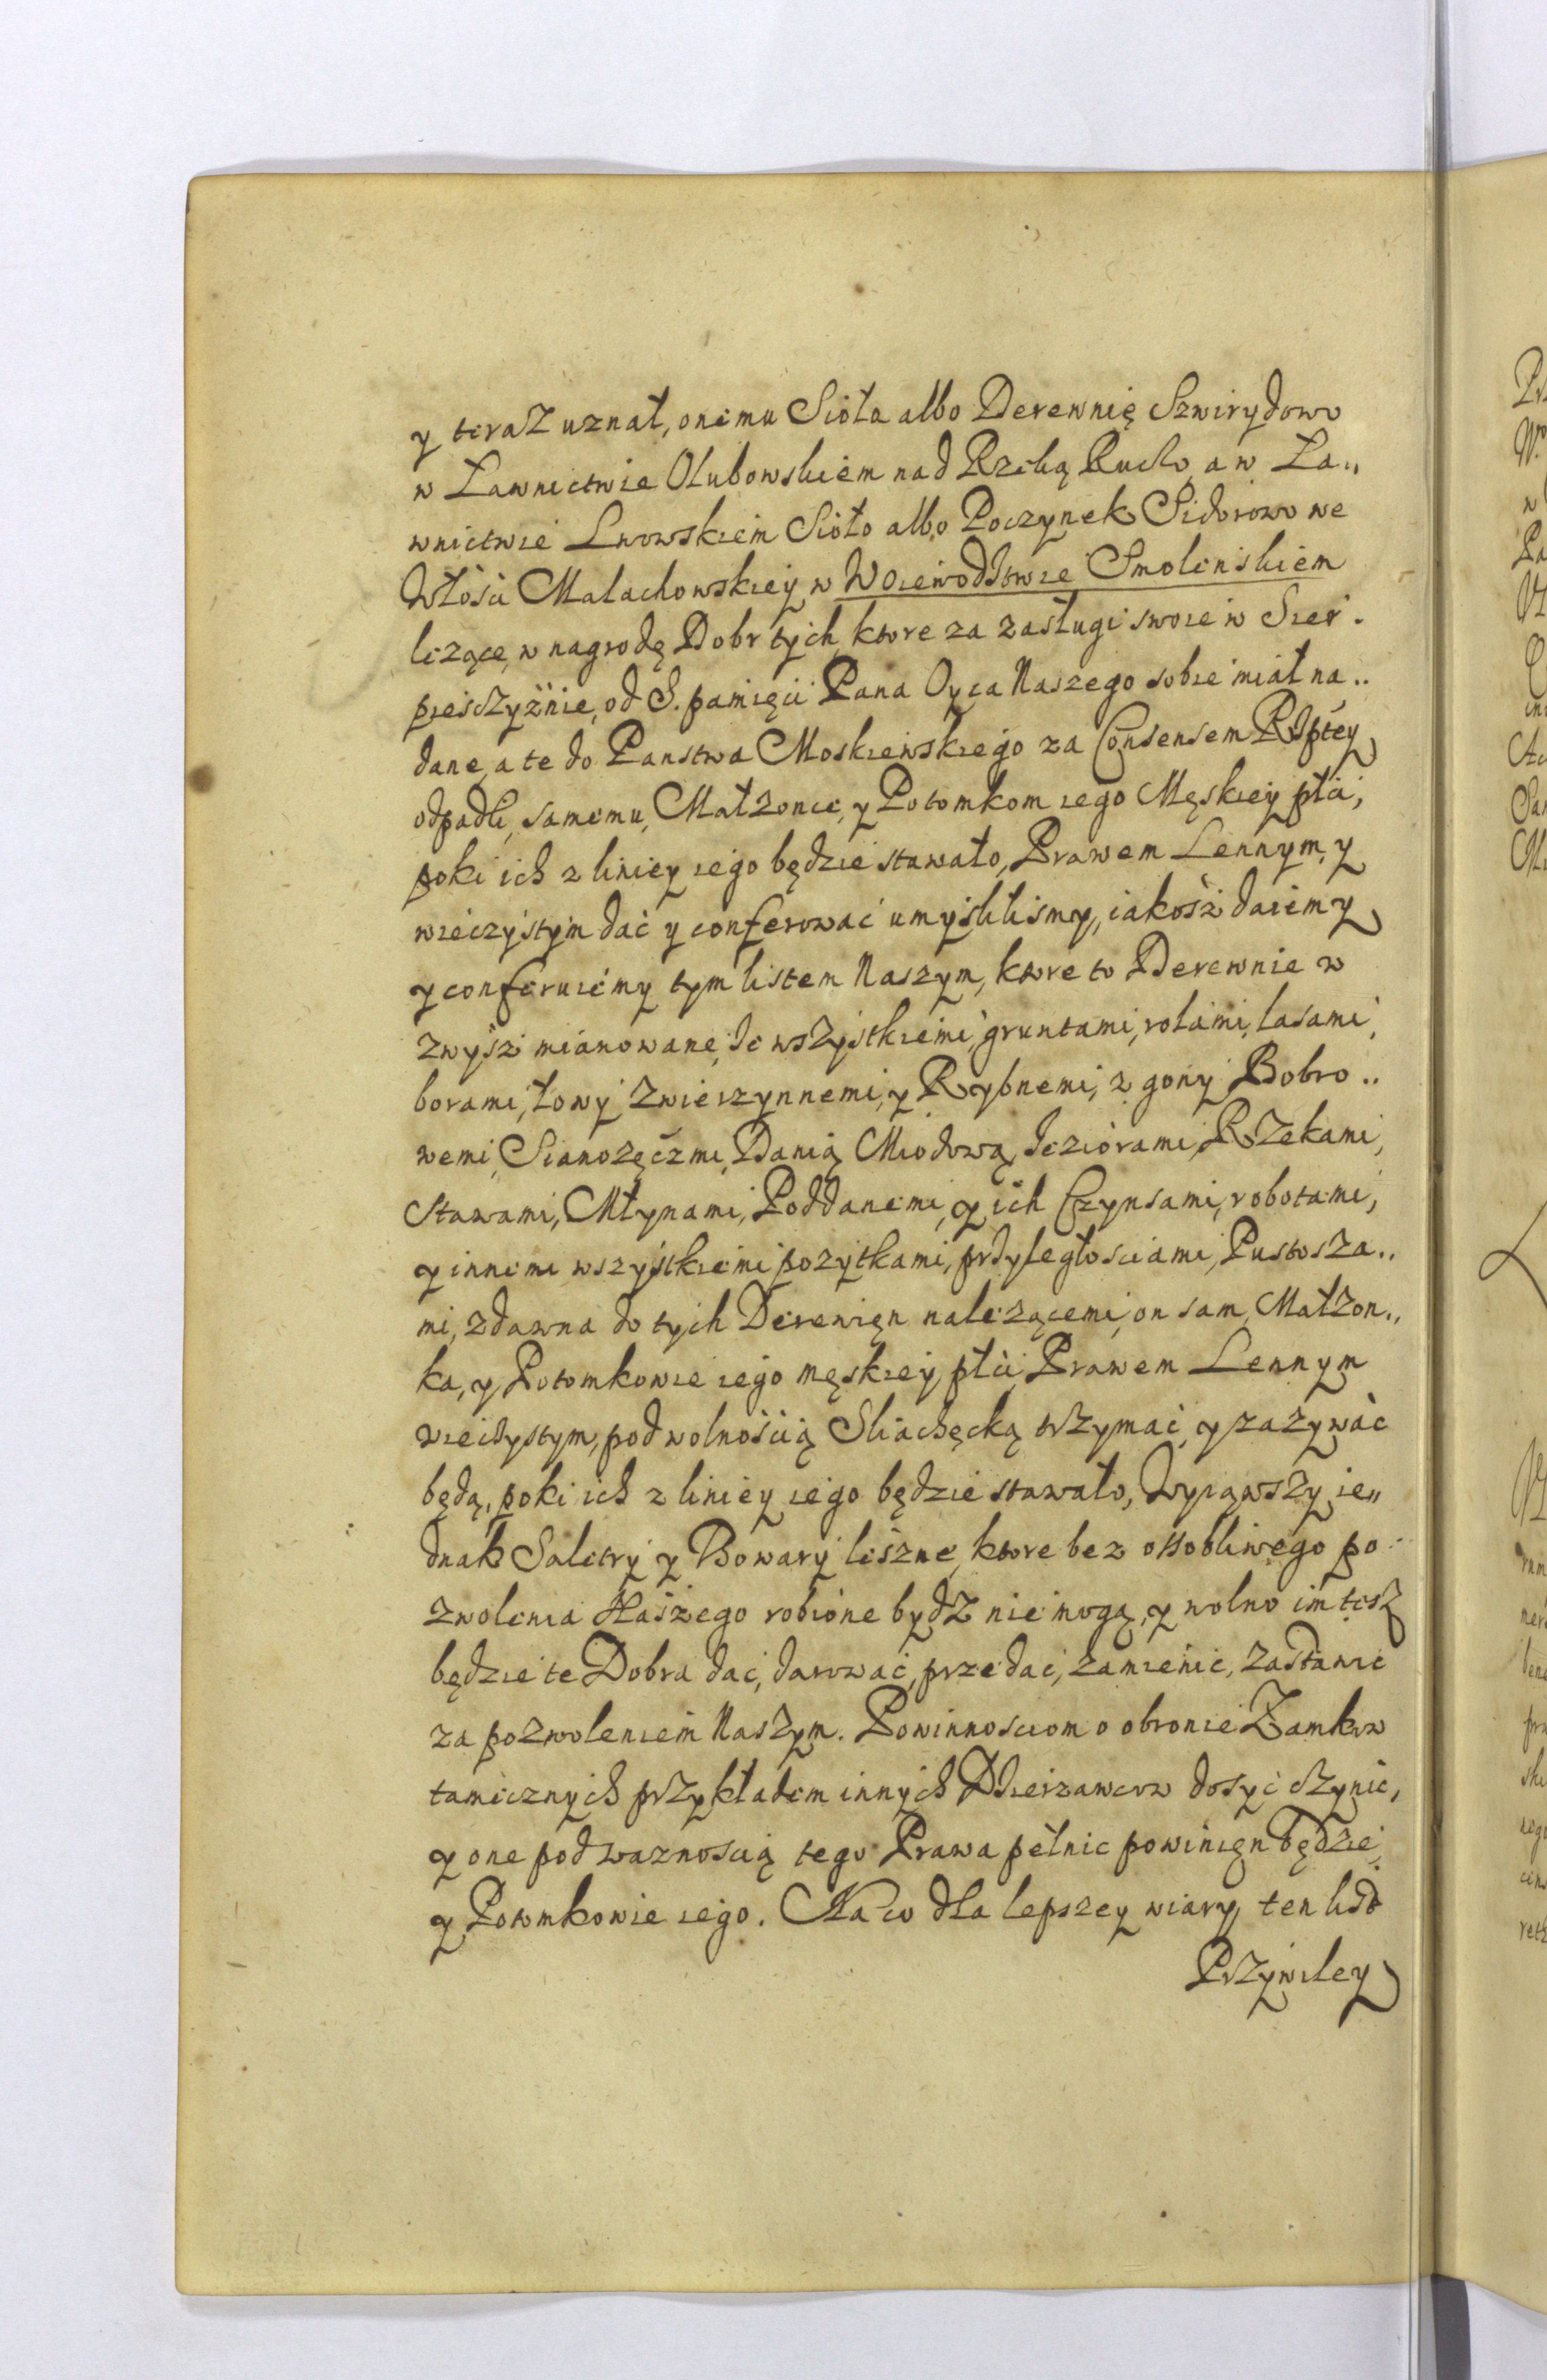 y teraz uznał, onemu Sioła albo Derewnię Szwirydowo
w Ławnictwie Olubowskiem nad Rzeką Ruchą, a w Ła„
wnictwie Lnowskiem Sioło albo Poczynek Sidorowo we
Włości Malachowskiey w Woiewodstwie Smolenskiem
lezące, w nagrodę Dobr tych, ktore za zasługi swoie w Sier.
pieszczyznie, od S. pamięci Pana Oyca Naszego sobie miał na..
dane, a te do Panstwa Moskiewskiego za Consensem Rzptey
odpadli, samemu, Małzonce, y Potomkom iego Męskiey płci,
poki ich z liniey iego będzie stawało, Prawem Lennym, y
wieczystym dać y conferować umyślilismy, iakosz daiemy
y conferuiemy tym listem Naszym, ktore to Derewnie w
zwysz mianowane, ze wszystkiemi, gruntami, rolami, lasami,
borami, łowy zwierzynnemi, y Rybnemi, z gony Bobro..
wemi, Sianozęczmi, Danią Miodową, Jeziorami, Rzekami,
Stawami, Młynami, Poddanemi, y ich Czynsami, robotami,
y innemi wszystkiemi pozytkami, przyległosciami, Pustosza..
mi, zdawna do tych Derewięn nalezącemi, on sam, Małzon„
ka, y Potomkowie iego męskiey płci, Prawem Lennym
wieczystym, pod wolnością Sliachęcką trzymać, y zazywać
będą, poki ich z liniey iego będzie stawało, Wyiąwszy ie„
dnak Saletry y Bowary leszne, ktore bez ossobliwego po..
zwolenia Naszego robione bydz nie mogą, y wolno im tesz
będzie te Dobra dać, darować, przedać, zamienić, zastawić
za pozwoleniem Naszym. Powinnosciom o obronie Zamkow
tamecznych przykładem innych Dzierzawcow dosyć czynić,
y one pod waznoscią tego Prawa pełnic powinięn będzie,
y Potomkowie iego. Na co dla lepszey wiary ten list
Przywiley